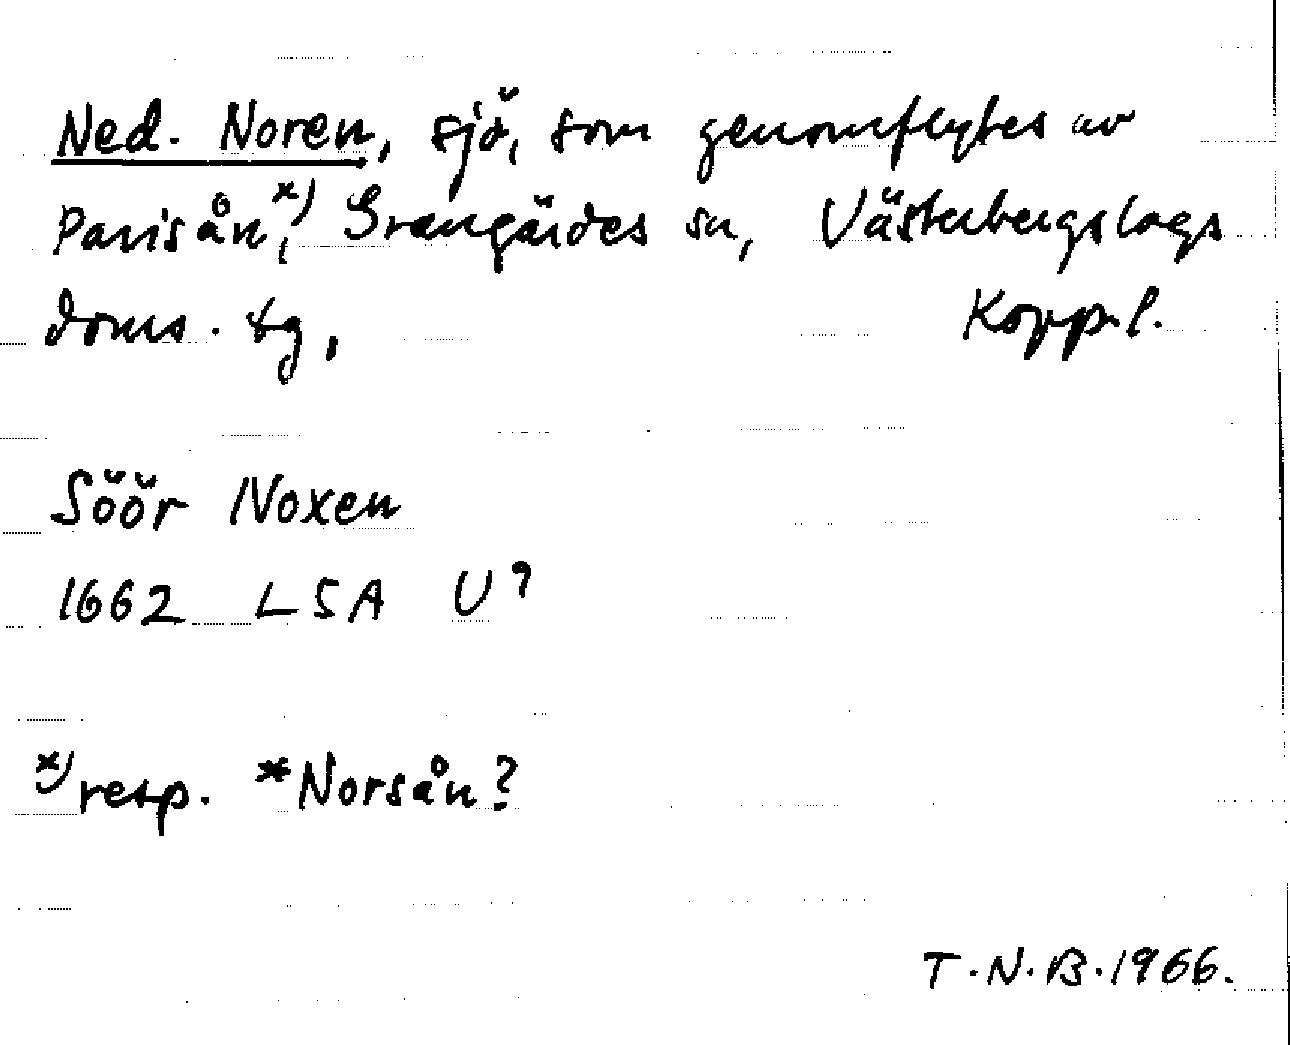 Ned. Noren, sjö, som genomflytes av
Parisån,x) Grangärdes sn, Västerbergslags
doms. tg, Kopp. l.
Söör Noxen
1662 LSA U9
x) resp. *Norsån?
T.N.B. 1966.